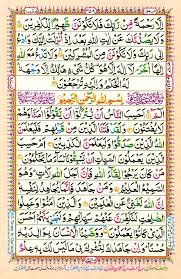 اِلَّا رَحْمَةً مِّنْ رَّبِّكَ فَلَا تَكُوْنَنَّ ظَهِيْرًا
لِّلْكٰفِرِيْنَ وَلَا يَصُدُّنَّكَ عَنْ اٰيٰتِ اللّٰهِ بَعْدَ اِذْ اُنْزِلَتْ اِلَيْكَ وَادْعُ
اِلٰى رَبِّكَ وَلَا تَكُوْنَنَّ مِنَ الْمُشْرِكِيْنَ وَلَا تَدْعُ مَعَ اللّٰهِ اِلٰهًا
اٰخَرَ لَآ اِلٰهَ اِلَّا هُوَ كُلُّ شَيْءٍ هَالِكٌ اِلَّا وَجْهَهٗ لَهُ
الْحُكْمُ وَاِلَيْهِ تُرْجَعُوْنَ
بِسْمِ اللّٰهِ الرَّحْمٰنِ الرَّحِيْمِ
الٓمّٓ اَحَسِبَ النَّاسُ اَنْ يُّتْرَكُوْٓا اَنْ يَّقُوْلُوْٓا اٰمَنَّا وَهُمْ
لَا يُفْتَنُوْنَ وَلَقَدْ فَتَنَّا الَّذِيْنَ مِنْ قَبْلِهِمْ فَلَيَعْلَمَنَّ
اللّٰهُ الَّذِيْنَ صَدَقُوْا وَلَيَعْلَمَنَّ الْكٰذِبِيْنَ اَمْ حَسِبَ الَّذِيْنَ
يَعْمَلُوْنَ السَّيِّاٰتِ اَنْ يَّسْبِقُوْنَا سَآءَ مَا يَحْكُمُوْنَ
مَنْ كَانَ يَرْجُوْا لِقَآءَ اللّٰهِ فَاِنَّ اَجَلَ اللّٰهِ لَاٰتٍ وَهُوَ
السَّمِيْعُ الْعَلِيْمُ وَمَنْ جَاهَدَ فَاِنَّمَا يُجَاهِدُ لِنَفْسِهٖ اِنَّ
اللّٰهَ لَغَنِيٌّ عَنِ الْعٰلَمِيْنَ وَالَّذِيْنَ اٰمَنُوْا وَعَمِلُوا الصّٰلِحٰتِ
لَنُكَفِّرَنَّ عَنْهُمْ سَيِّاٰتِهِمْ وَلَنَجْزِيَنَّهُمْ اَحْسَنَ الَّذِيْ كَانُوْا يَعْمَلُوْنَ وَوَصَّيْنَا الْاِنْسَانَ بِوَالِدَيْهِ
حُسْنًا وَاِنْ جَاهَدٰكَ لِتُشْرِكَ بِيْ مَا لَيْسَ لَكَ بِهٖ